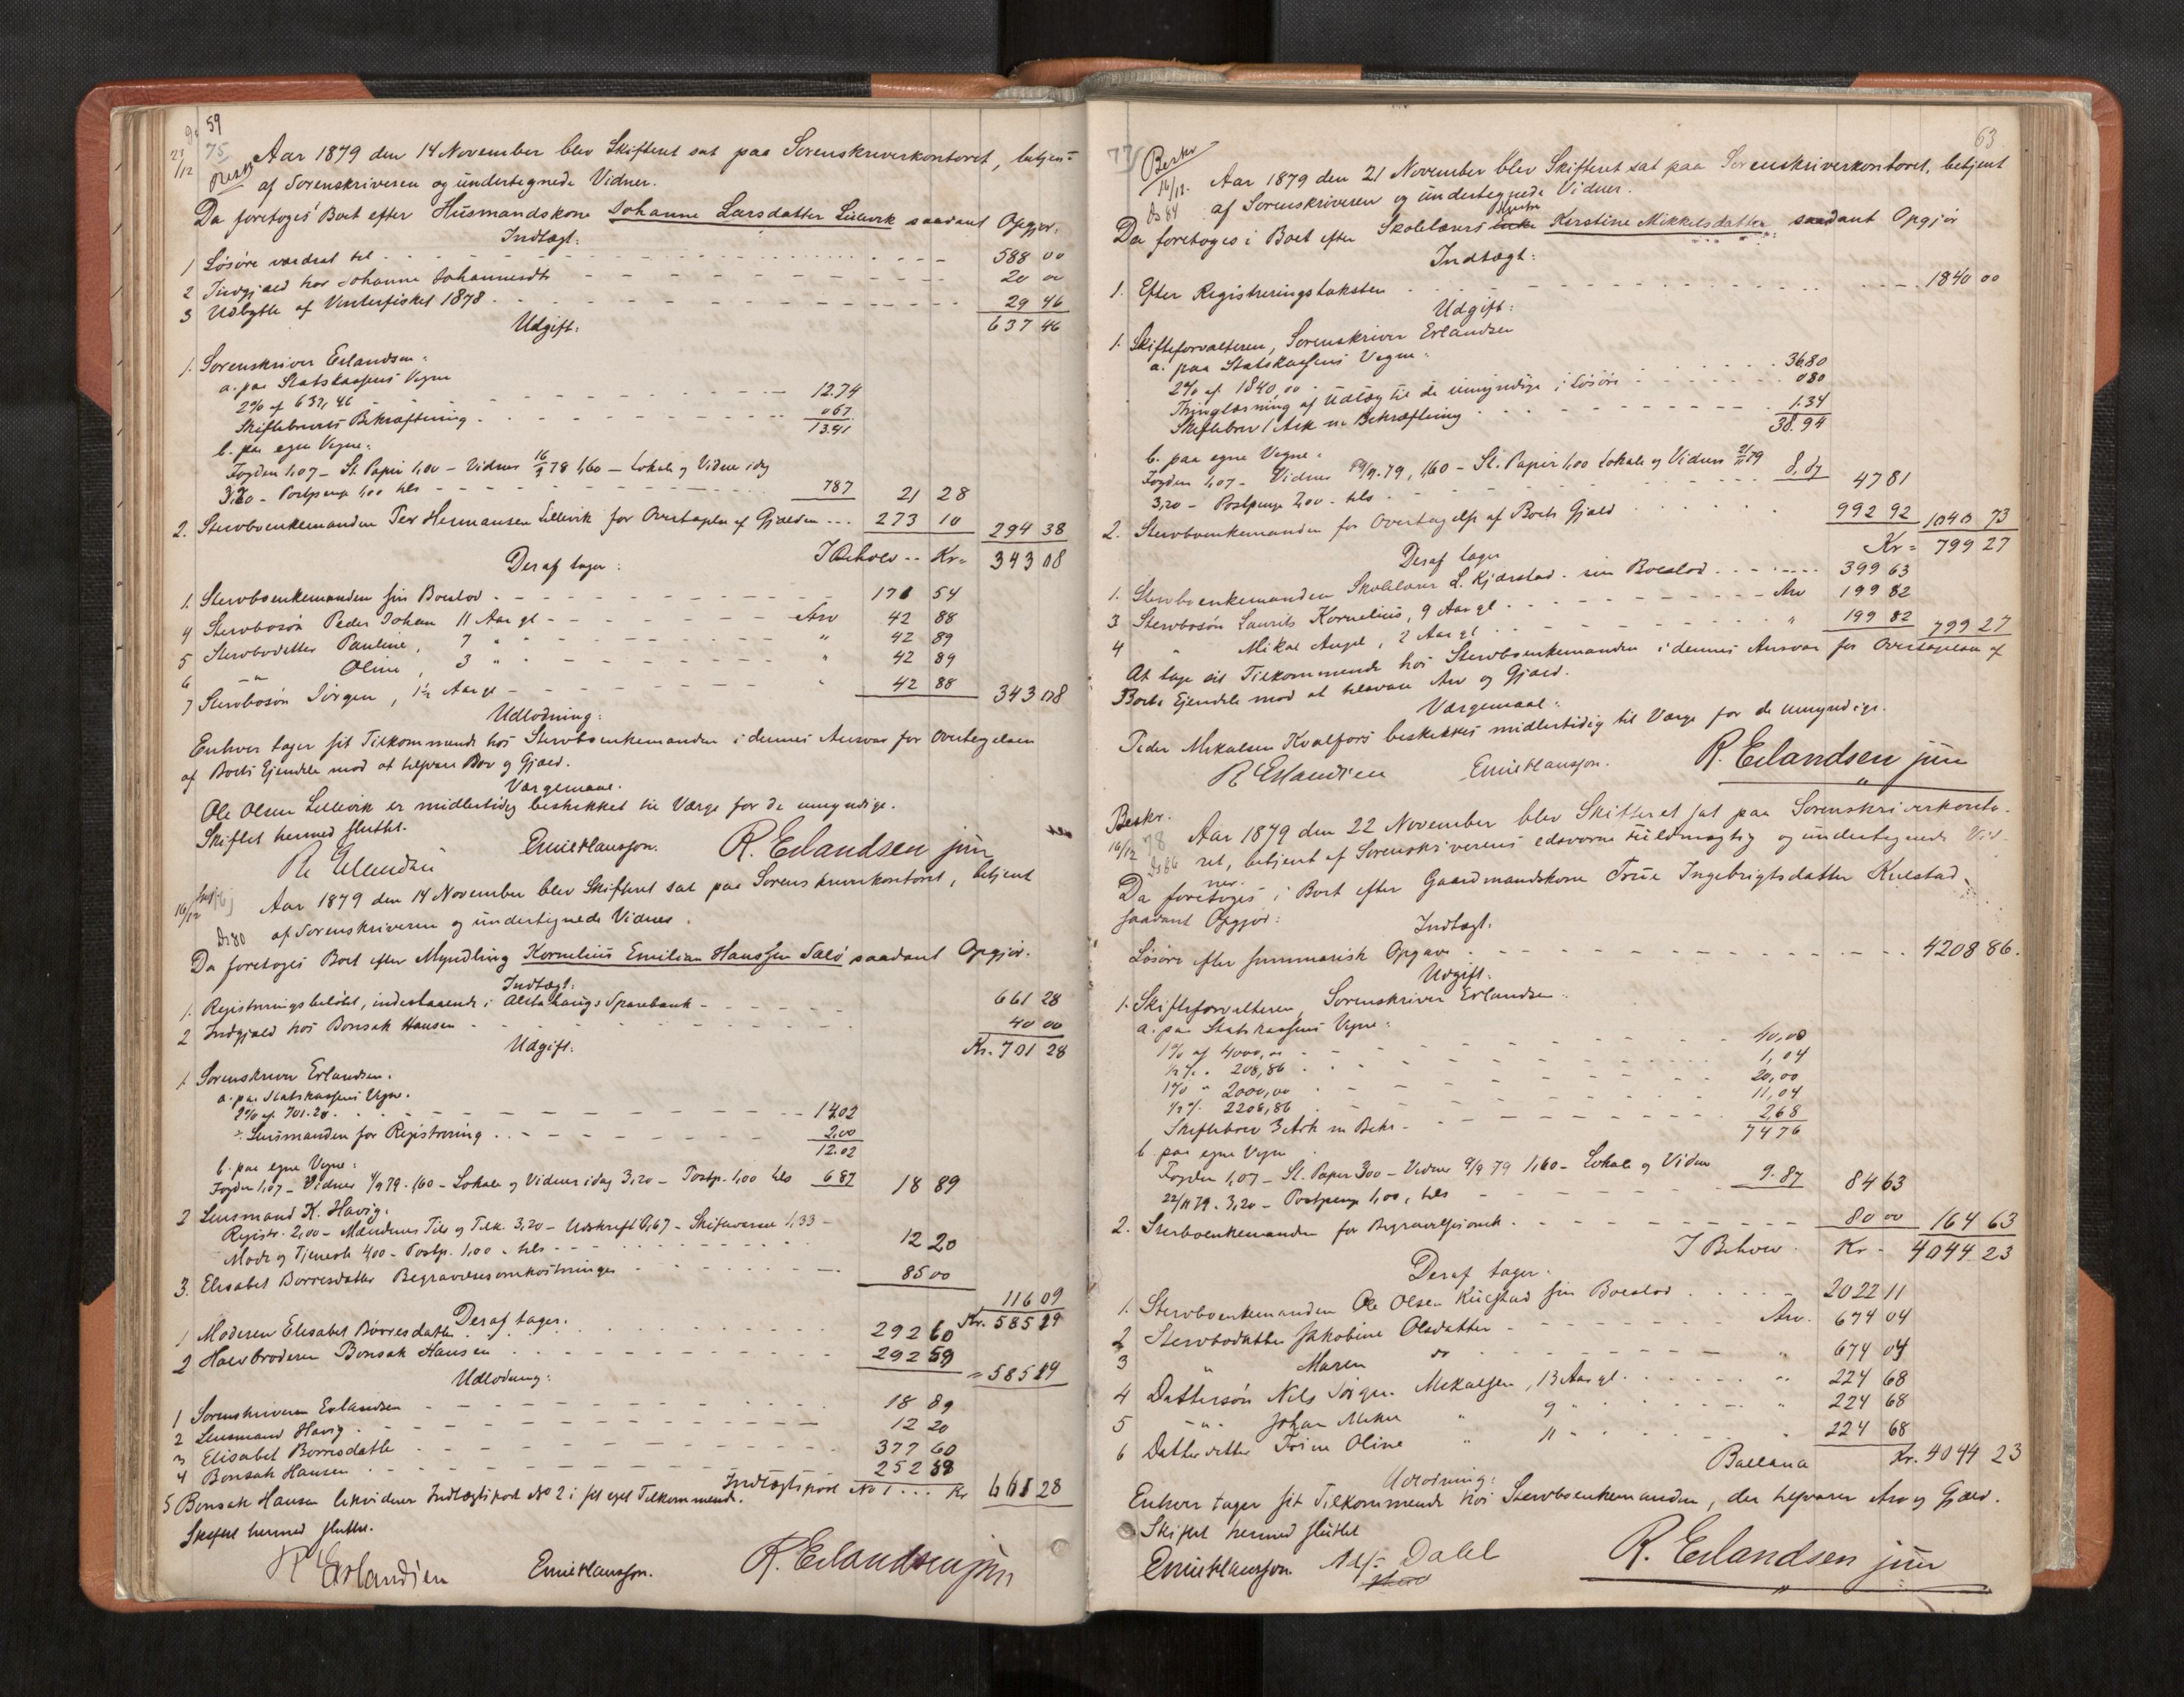 59
75
21/12
Beskr
Aar 1879 den 14 November blev Skifteret sat paa Sorenskriverkontoret, betjent
af Sorenskriveren og undertegnede Vidner.
Da foretoges Boet efter Husmandskone Johanne Larsdatter Lillevik saadant Opgjør.
Indtægt:
1 Løsøre værdsat til 588 00
2 Indgjæld hos Johanne Johannesdtr 20 00
3 Udbytte af Vinterfisket 1878 29 46
637 46
Udgift:
1. Sorenskriver Erlandsen:
a. paa Statskassens Vegne
2% af 637,46 12.74
Skiftebrevets Bekræftning 067
13.41
b. paa egne Vegne:
Fogden 1,07 - St. Papir 1,00 - Vidner 16/9 78 1,60 - Lokale og Vidner idag
3,20 - Postpenge 1,00 tils 787 21 28
2. Stervboenkemanden Per Hermansen Lillevik for Overtagelse af Gjælden 273 10 294 38
I Behold Kr= 343 08
Deraf tager:
1. Stervboenkemanden sin Boeslod 171 54
4 Stervbosøn Peder Johan 11 Aar gl Arv 42 88
5 Stervbodatter Pauline, 7 " " 42 89
6 -"- Oline, 3 " " 42 89
7 Stervbosøn Jørgen, 1½ Aar gl " 42 88 343 08
Udlodning:
Enhver tager sit Tilkommende hos Stervboenkemanden i dennes Ansvar for Overtagelsen
af Boets Ejendele mod at tilsvare Arv og Gjæld.
Værgemaal.
Ole Olsen Lillevik er midlertidig beskikket til Værge for de umyndige.
Skiftet hermed sluttet.
R Erlandsen Emil Hansson. R. Erlandsen jun
16/12
Ds 80
Aar 1879 den 14 November blev Skifteret sat paa Sorenskriverkontoret, betjent
af Sorenskriveren og undertegnede Vidner.
Da foretoges Boet efter Myndling Kornelius Emilian Hanssen Salø saadant Opgjør.
Indtægt:
1. Registreringsbeløbet, indestaaende i Alstahaugs Sparebank 661 28
2 Indgjæld hos Bonsak Hansen 40 00
Kr. 701 28
Udgift:
1. Sorenskriver Erlandsen.
a. paa Statskassens Vegne.
2% af 701.28 1402
÷ Lensmanden for Registrering 2,00
12.02
b. paa egne Vegne:
Fogden 1,07 - Vidner 4/9 79 1,60 - Lokale og Vidner idag 3,20 - Postp. 1,00 tils 687 18 89
2 Lensmand K. Havig.
Registr. 2,00 - Mændenes Tils og Tilk. 3,20 - Udskrift 0,67 - Skiftevarsel 1,33 -
Møde og Tjeneste 4,00 - Postp. 1,00 tils 12 20
3. Elisabet Børresdatter Begravelsesomkostninger 85 00
116 09
Kr. 585 19
Deraf tager.
1 Moderen Elisabet Børresdatter 292 60
2 Halvbroderen Bonsak Hansen 292 59 = 585 19
Udlodning:
1 Sorenskriveren Erlandsen 18 89
2 Lensmand Havig 12 20
3 Elisabet Børresdatter 377 60
4 Bonsak Hansen 252 59
Indtægtspost No 1 Kr 661 28
5 Bonsak Hansen likviderer Indtægtspost No 2 i sit eget Tilkommende.
Skiftet hermed sluttet.
R Erlandsen Emil Hansson. R. Erlandsen jun
63
77
Beskr
16/12.
Ds 84
Aar 1879 den 21 November blev Skifteret sat paa Sorenskriverkontoret, betjent
af Sorenskriveren og undertegnede Vidner.
Hustru
Da foretoges i Boet efter Skolelærers Enke Kerstine Mikkelsdatter saadant Opgjør
Indtægt:
1. Efter Registreringstaksten 1840 00
Udgift:
1. Skifteforvalteren, Sorenskriver Erlandsen
a. paa Statskassens Vegne:
2% af 1840,00 36.80
Thinglæsning af Udlæg til de umyndige i Løsøre 080
Skiftebrev 1 Ark m Bekræftning 1.34
38.94
b. paa egne Vegne:
Fogden 1,07 - Vidner 19/9. 79, 1,60 - St. Papir 1,00 Lokale og Vidner 21/11 79
3,20 - Postpenge 2,00 - tils 8.87 47 81
2. Stervboenkemanden for Overtagelse af Boets Gjæld 992 92 1040 73
Kr= 799 27
Deraf tager
1. Stervboenkemanden Skolelærer L. Kjærstad sin Boeslod 399 63
3 Stervbosøn Laurits Kornelius, 9 Aar gl Arv 199 82
4 " Mikal Angel, 2 Aar gl " 199 82 799 27
At tage sit Tilkommende hos Stervboenkemanden i dennes Ansvar for Overtagelsen af
Boets Ejendele mod at tilsvare Arv og Gjæld.
Værgemaal:
Peder Mikalsen Kvalfors beskikkes midlertidig til Værge for de umyndige.
R Erlandsen Emil Hansson. R. Erlandsen jun
Beskr.
16/12 78
Ds 86
Aar 1879 den 22 November blev Skifteret sat paa Sorenskriverkonto-
ret, betjent af Sorenskriverens edsvorne Fuldmægtig og undertegnede Vid-
ner.
Da foretoges i Boet efter Gaardmandskone Trine Ingebrigtsdatter Kulstad
saadant Opgjør:
Indtægt.
Løsøre efter summarisk Opgave 4208 86.
Udgift.
1. Skifteforvalteren, Sorenskriver Erlandsen
a. paa Statskassens Vegne:
1% af 4000,00 40,00
½ % " 208,86 1,04
1% " 2000,00 20,00
½ % 2208,86 11,04
Skiftebrev 3 Ark m Bekr. 2,68
74 76
b. paa egne Vegne
Fogden 1,07 - St. Papir 3,00 - Vidner 9/9 79 1,60 - Lokale og Vidner
22/11 79. 3,20 - Postpenge 1,00, tils 9.87 84 63
2. Stervboenkemanden for Begravelsesomk. 80 00 164 63
I Behold Kr - 4044 23
Deraf tager.
1. Stervboenkemanden Ole Olsen Kulstad sin Boeslod 2022 11
2 Stervbodatter Jakobine Olsdatter Arv. 674 04
3 " Maren do " 674 04
4 Dattersøn Nils Jørgen Mikalsen, 13 Aar gl. " 224 68
5 -"- Johan Mikal " 9 " " 224 68
6 Datterdatter Trine Oline " 11 " " 224 68
Ballana Kr. 4044 23
Udlodning:
Enhver tager sit Tilkommende hos Stervboenkemanden, der tilsvarer Arv og Gjæld.
Skiftet hermed sluttet
Emil Hansson. Alf. Dahl R. Erlandsen jun